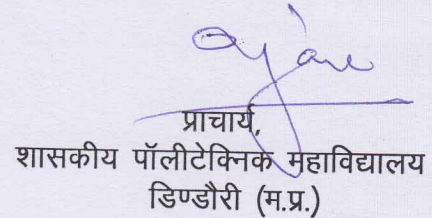 प्राचार्य,
शासकीय पॉलीटेक्निक महाविद्यालय
डिण्डौरी (म.प्र.)